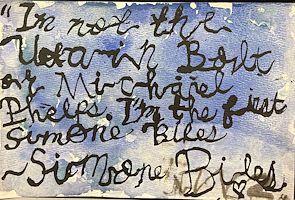 "Im not the
Usain Bolt
or Michael
Phelps. I'm the first
Simone Biles
~Simone Biles